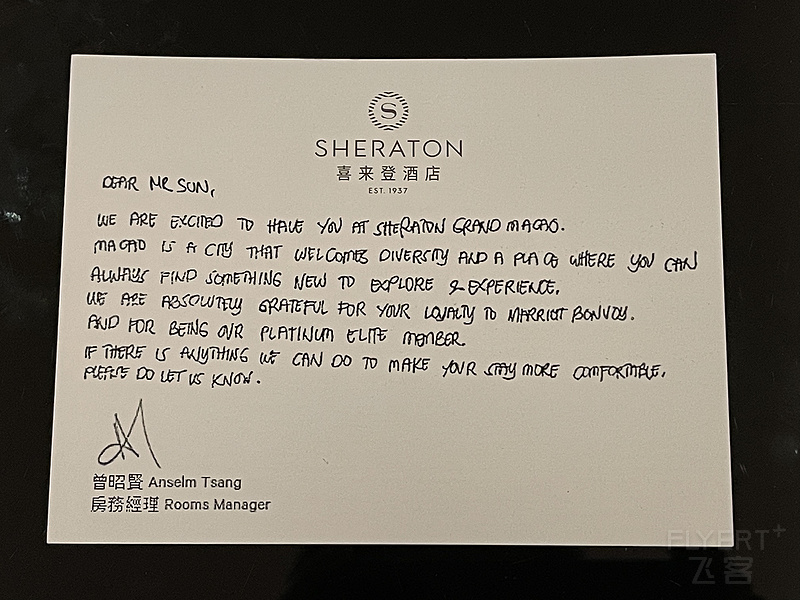 S
SHERATON
喜来登酒店
EST. 1937
DEAR MR SUN,
WE ARE EXCITED TO HAVE YOU AT SHERATON GRAND MACAO.
MACAO IS A CITY THAT WELCOMES DIVERSITY AND A PLACE WHERE YOU CAN
ALWAYS FIND SOMETHING NEW TO EXPLORE & EXPERIENCE.
WE ARE ABSOLUTELY GRATEFUL FOR YOUR LOYALTY TO MARRIOT BONVOY.
AND FOR BEING OUR PLATINUM ELITE MEMBER.
IF THERE IS ANYTHING WE CAN DO TO MAKE YOUR STAY MORE COMFORTABLE.
PLEASE DO LET US KNOW.
曾昭賢 Anselm Tsang
房務經理 Rooms Manager
FLYERT+
飞客